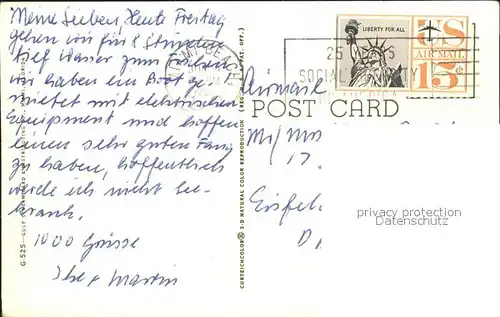 Meine Lieben, Heute Freitag
gehen wir für 8 Stunden
tief Wasser zum Fischen
wir haben ein Boot ge-
mietet mit elektrischen
Equipment und hoffen
einen sehr guten Fang
zu haben, hoffentlich
werde ich nicht See-
krank.
1000 Grüsse
Martin
G-525
CURTEICHCOLOR® 3-D NATURAL COLOR REPRODUCTION (REG. U.S.A. PAT. OFF.)
LIBERTY FOR ALL
US
AIR MAIL
15¢
25
SOCIAL
Airmail
POST CARD
Mr/Mrs
17.
Eisfel
D
privacy protection
Datenschutz